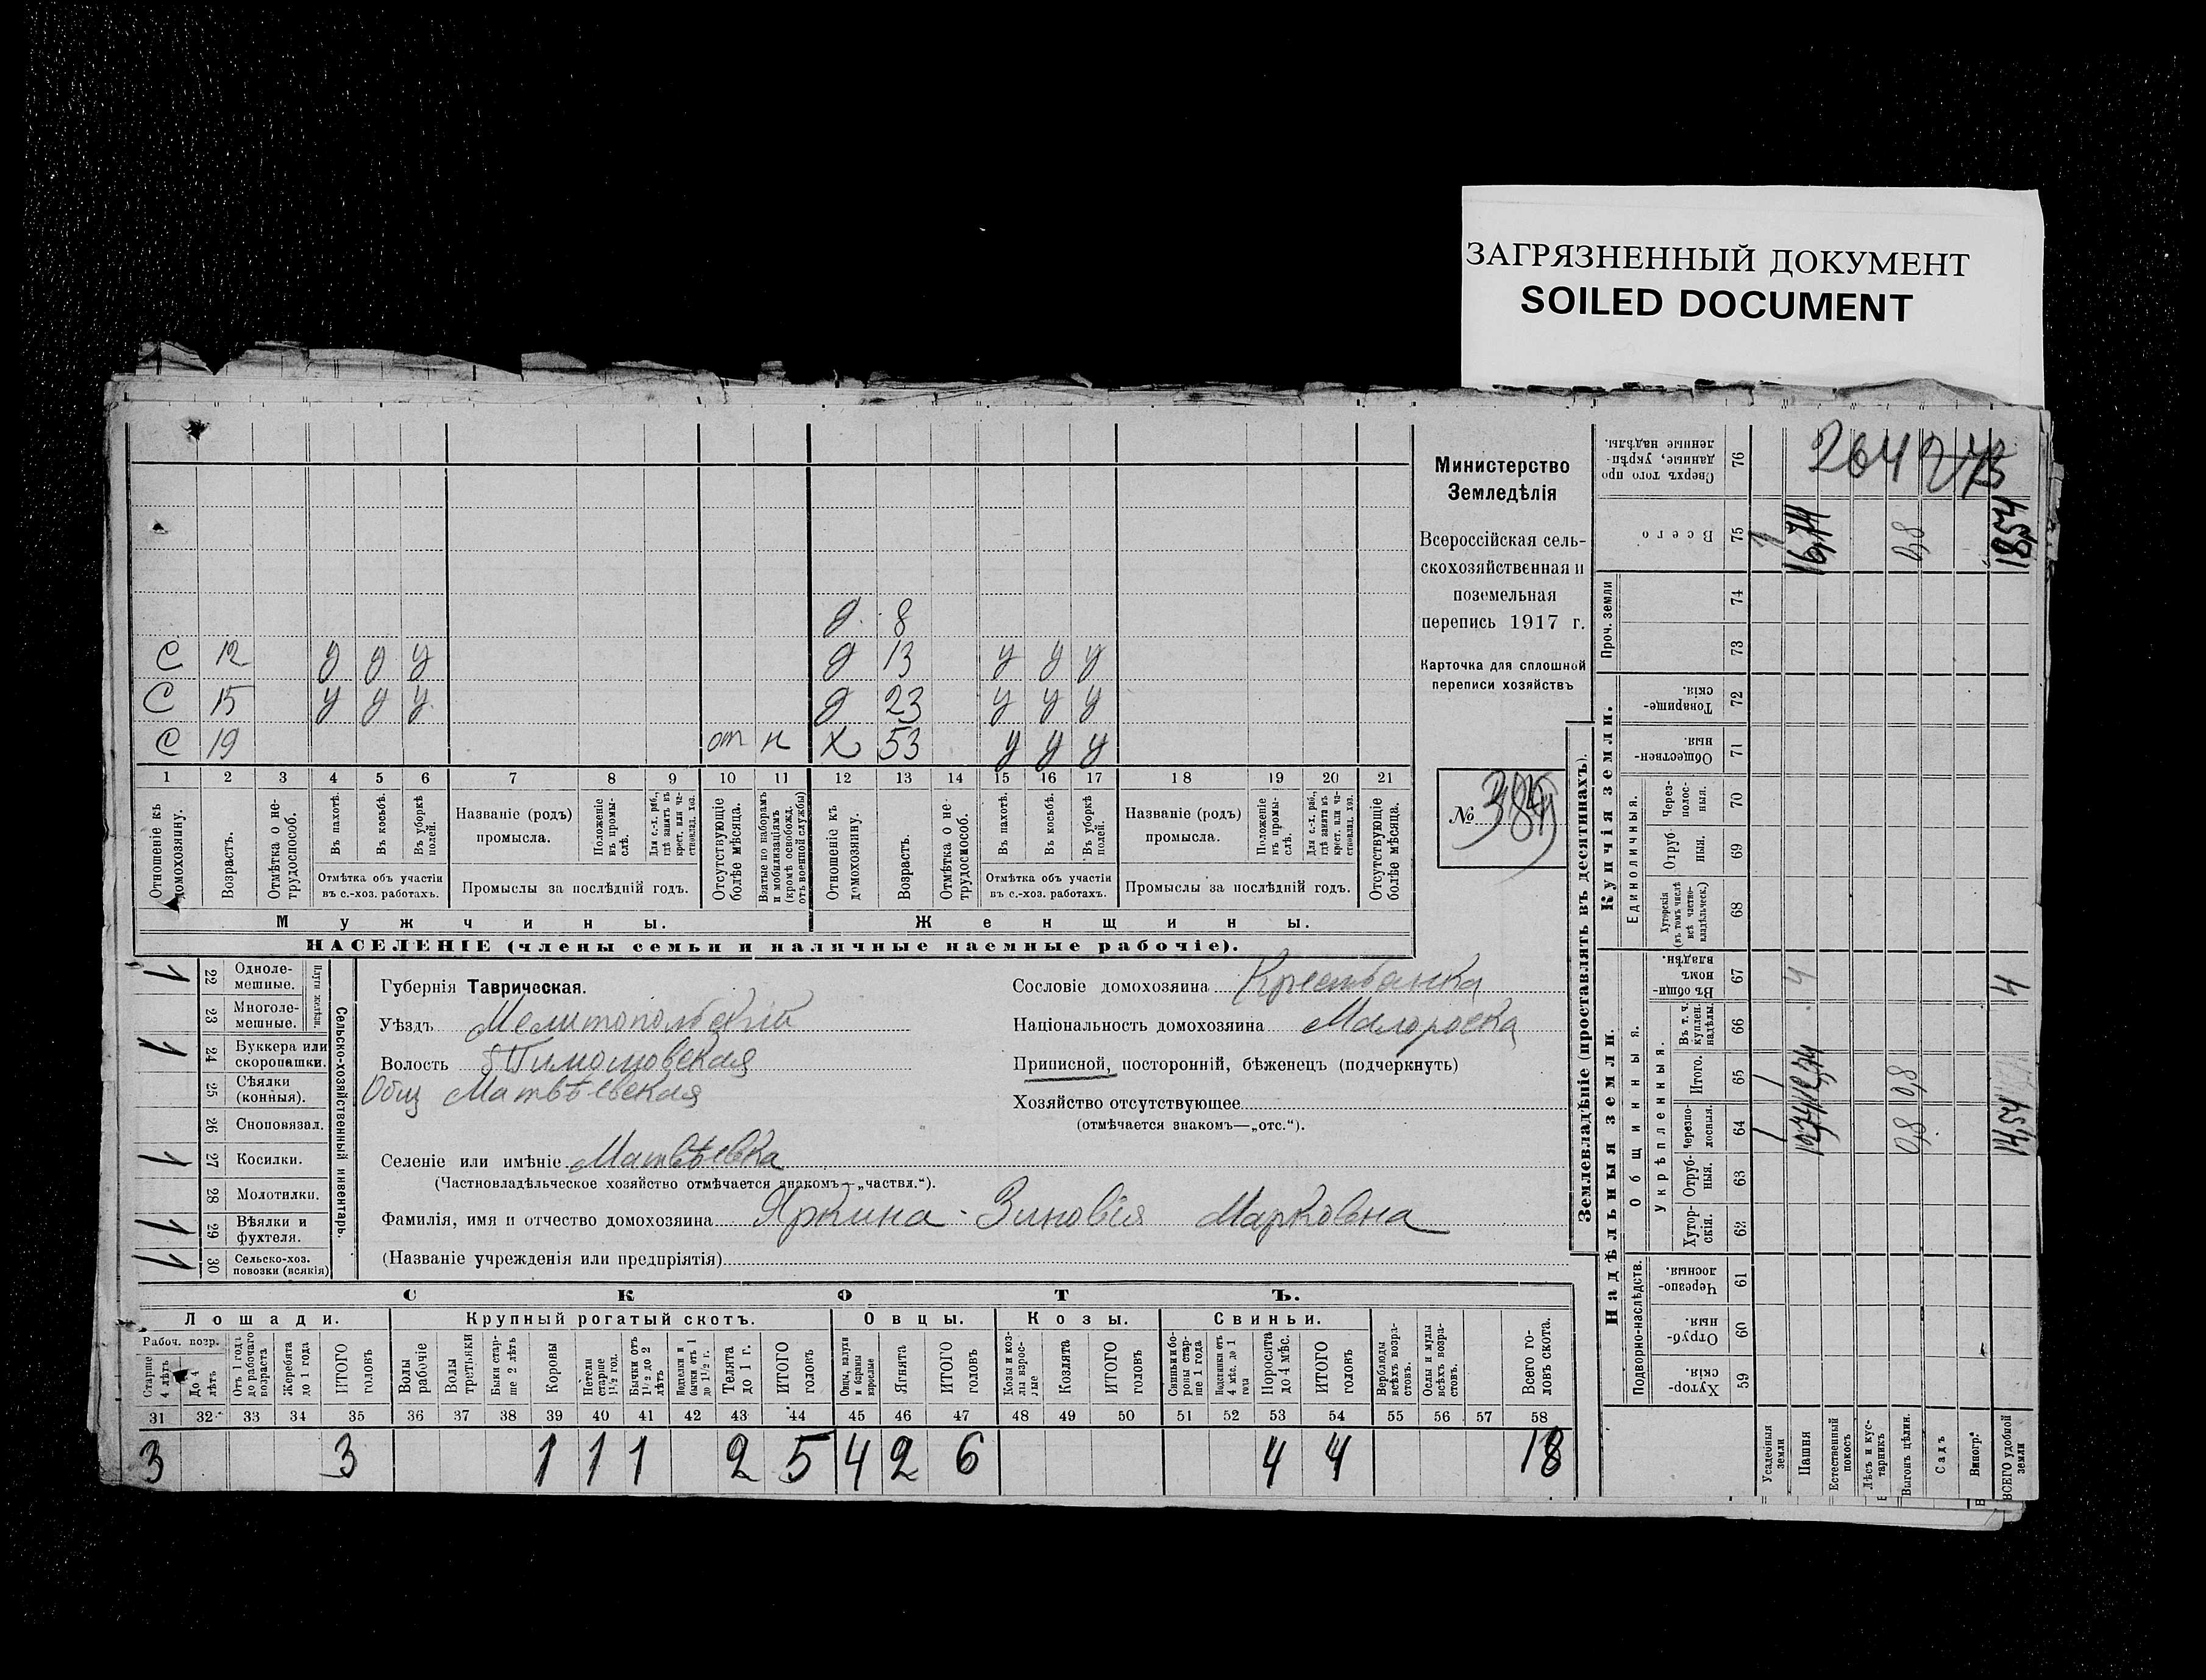 ЗАГРЯЗНЕННЫЙ ДОКУМЕНТ
SOILED DOCUMENT
Министерство
Земледѣлія
Всероссійская сель-
скохозяйственная и
поземельная
перепись 1917 г.
Карточка для сплошной
переписи хозяйствъ
№
д. 8
с 12 у у у д 13 у у у
с 15 у у у д 23 у у у
с 19 от н х 53 у у у
1 2 3 4 5 6 7 8 9 10 11 12 13 14 15 16 17 18 19 20 21
Отношеніе къ домохозяину.
Возрастъ.
Отмѣтка о не-трудоспособ.
Въ пахотѣ.
Въ косьбѣ.
Въ уборкѣ полей.
Отмѣтка объ участіи въ с.-хоз. работахъ.
Названіе (родъ) промысла.
Положеніе въ промы-слѣ.
Для с.-х. раб., гдѣ занятъ въ крест. или ча-стновлад. хоз.
Промыслы за послѣдній годъ.
Отсутствующіе болѣе мѣсяца.
Взятые по наборамъ и мобилизаціямъ (кромѣ освобожд. отъ военной службы)
Отношеніе къ домохозяину.
Возрастъ.
Отмѣтка о не-трудоспособ.
Въ пахотѣ.
Въ косьбѣ.
Въ уборкѣ полей.
Отмѣтка объ участіи въ с.-хоз. работахъ.
Названіе (родъ) промысла.
Положеніе въ промы-слѣ.
Для с.-х. раб., гдѣ занята въ крест. или ча-стновлад. хоз.
Промыслы за послѣдній годъ.
Отсутствующіе болѣе мѣсяца.
Мужчины. Женщины.
НАСЕЛЕНІЕ (члены семьи и наличные наемные рабочіе).
Сельско-хозяйственный инвентарь.
Плуги желѣзн.
1 22 Одноле-мешные.
23 Многоле-мешные.
1 24 Буккера или скоропашки.
25 Сѣялки (конныя).
26 Сноповязал.
1 27 Косилки.
28 Молотилки.
1 29 Вѣялки и фухтеля.
1 30 Сельско-хоз. повозки (всякія)
Губернія Таврическая.
Уѣздъ Мелитопольскій
Волость Тимошовская
Общ Матвѣевская
Селеніе или имѣніе Матвѣевка
(Частновладѣльческое хозяйство отмѣчается знакомъ—„частвл.“).
Фамилія, имя и отчество домохозяина Яркина Зиновія Марковна
(Названіе учрежденія или предпріятія)
Сословіе домохозяина Крестьянка
Національность домохозяина Малороска
Приписной, посторонній, бѣженец (подчеркнуть)
Хозяйство отсутствующее
(отмѣчается знакомъ—„отс.“).
СКОТЪ.
Лошади. Крупный рогатый скотъ. Овцы. Козы. Свиньи.
Рабоч. возр.
Старше 4 лѣтъ
До 4 лѣтъ
Отъ 1 года до рабочаго возраста
Жеребята до 1 года
ИТОГО головъ
Волы рабочіе
Волы третьяки
Быки стар-ше 2 лѣтъ
Коровы
Нетели старше 1½ год.
Бычки отъ 1½ до 2 лѣтъ
Подтелки и бычки отъ 1 до 1½ г.
Телята до 1 г.
ИТОГО головъ
Овцы, валухи и бараны взрослые
Ягнята
ИТОГО головъ
Козы и коз-лы взрос-лые
Козлята
ИТОГО головъ
Свиньи и бо-ровы стар-ше 1 года
Подсвинки отъ 4 мѣс. до 1 года
Поросята до 4 мѣс.
ИТОГО головъ
Верблюды всѣхъ возра-стовъ.
Ослы и мулы всѣхъ возра-стовъ.
Всего го-ловъ скота.
31 32 33 34 35 36 37 38 39 40 41 42 43 44 45 46 47 48 49 50 51 52 53 54 55 56 57 58
3 3 1 1 1 2 5 4 2 6 4 4 18
Землевладѣніе (проставлять въ десятинахъ).
Купчія земли.
Надѣльныя земли.
Единоличныя.
Общинныя.
Укрѣпленныя.
Подворно-наслѣдств.
Проч. земли
76 Сверхъ того про данные, укрѣп-ленные надѣлы.
264
75 Всего 16,74 0,8 18,54
74
73
72 Товарище-скія.
71 Обществен-ныя.
70 Через-полос-ныя.
69 Отруб ныя.
68 Хуторскія (въ томъ числѣ всѣ частно-владѣльческ.)
67 Въ общи-номъ владѣн. 4 4
66 Въ т. ч. куплен. надѣлы.
65 Итого. 1 12,74 0,8
64 Черезпо-лосныя. 1 0,8 14,54
63 Отруб-ныя.
62 Хутор-скія.
61 Черезпо-лосныя.
60 Отруб-ныя.
59 Хутор-скія.
Усадебныя земли
Пашня
Естественный покосъ
Лѣсъ и кус-тарникъ
Выгонъ цѣлин.
Садъ
Виногр.
ВСЕГО удобной земли